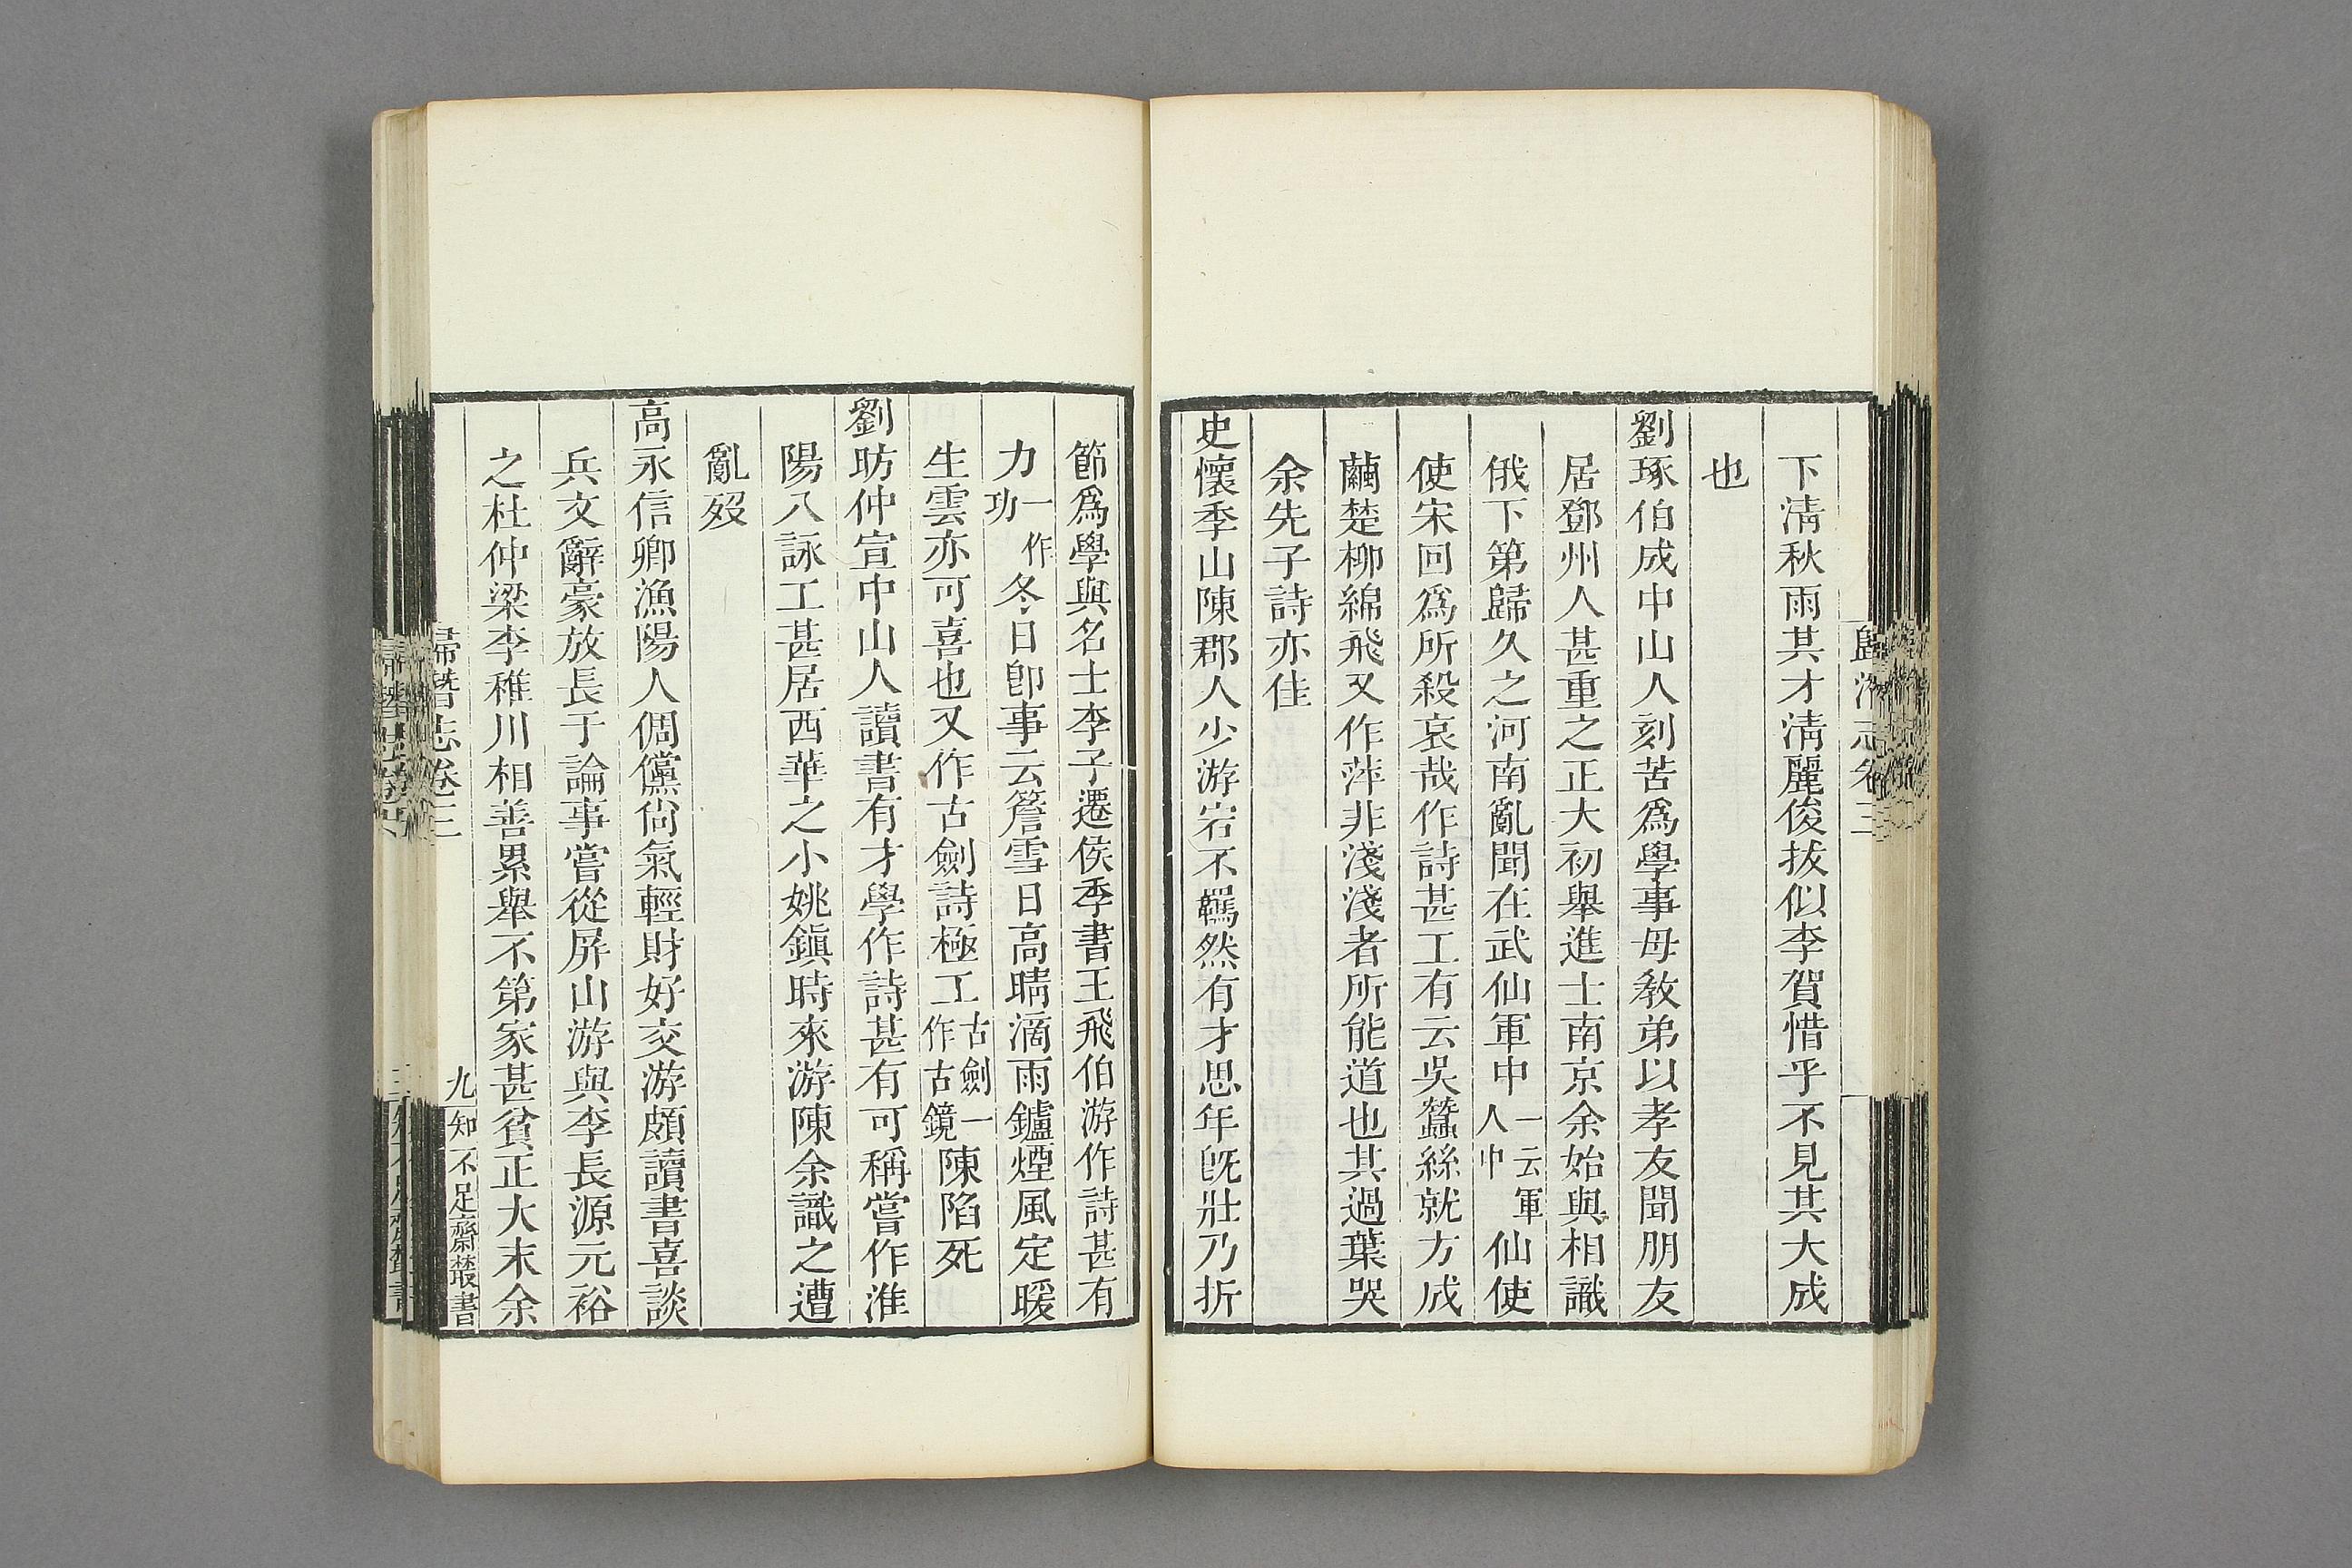 下淸秋雨其才淸麗俊拔似李賀惜乎不見其大成
也
劉琢伯成中山人刻苦爲學事母敎弟以孝友聞朋友
居鄧州人甚重之正大初舉進士南京余始與相識
俄下第歸久之河南亂聞在武仙軍中一云軍人中仙使
使宋回爲所殺哀哉作詩甚工有云吳蠶絲就方成
繭楚柳綿飛又作萍非淺淺者所能道也其過葉哭
余先子詩亦佳
史懷季山陳郡人少游宕不羈然有才思年旣壯乃折
節爲學與名士李子遷侯季書王飛伯游作詩甚有
力一作功冬日卽事云簷雪日高晴滴雨鑪煙風定暖
生雲亦可喜也又作古劍詩極工古劍一作古鏡陳陷死
劉昉仲宣中山人讀書有才學作詩甚有可稱嘗作淮
陽八詠工甚居西華之小姚鎭時來游陳余識之遭
亂歿
高永信卿漁陽人倜儻尙氣輕財好交游頗讀書喜談
兵文辭豪放長于論事嘗從屏山游與李長源元裕
之杜仲梁李稚川相善累舉不第家甚貧正大末余
歸潛志卷三
九
知不足齋叢書